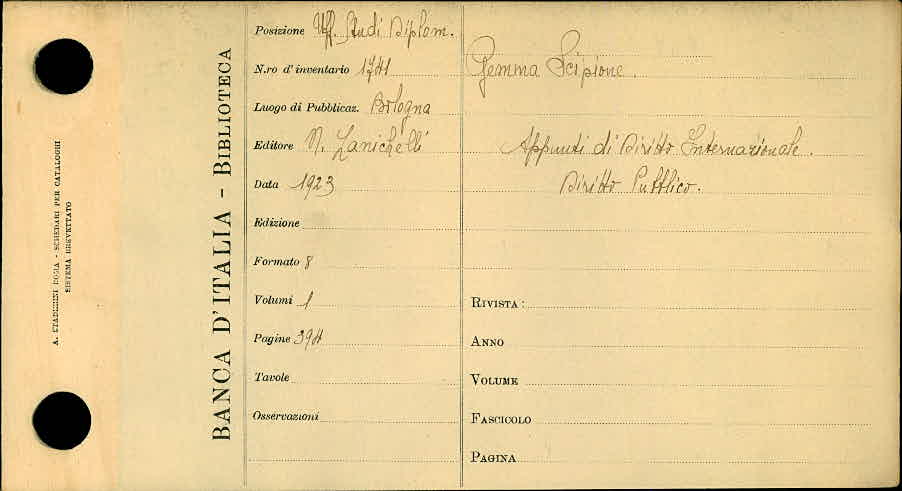 A. STADERINI ROMA - SCHEDARI PER CATALOGHI
SISTEMA BREVETTATO
BANCA D'ITALIA - BIBLIOTECA
Posizione Uff. Studi Diplom.
N.ro d'inventario 1741
Luogo di Pubblicaz. Bologna
Editore N. Zanichelli
Data 1923
Edizione
Formato 8
Volumi 1
Pagine 394
Tavole
Osservazioni
Gemma Scipione.
Appunti di Diritto Internazionale.
Diritto Pubblico.
RIVISTA:
ANNO
VOLUME
FASCICOLO
PAGINA